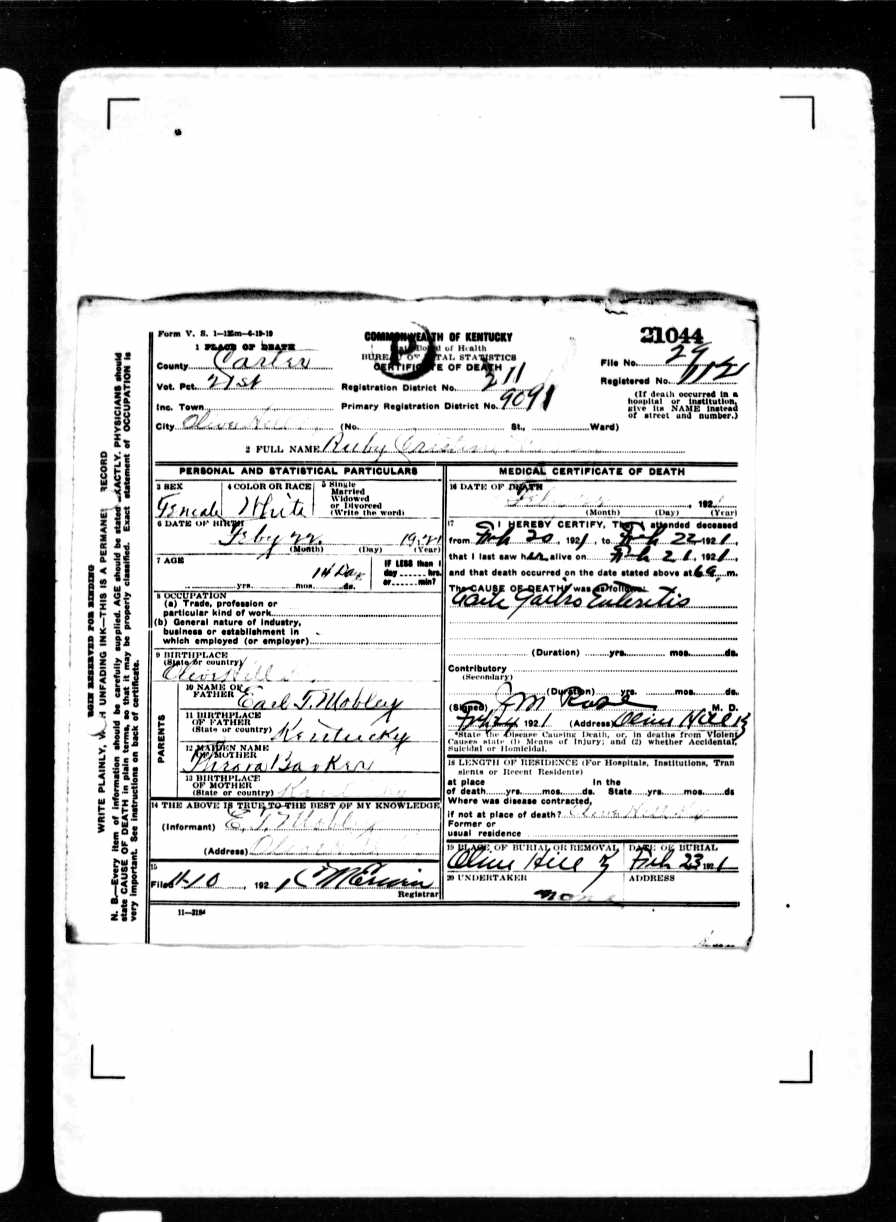 Form V. S. 1—125m—6-19-19
COMMONWEALTH OF KENTUCKY
21044
1 PLACE OF DEATH
State Board of Health
BUREAU OF VITAL STATISTICS
CERTIFICATE OF DEATH
P
County Carter
File No. 29
Vot. Pct. 21st
Registration District No. 211
Registered No.
Inc. Town
Primary Registration District No. 9091
(If death occurred in a hospital or institution, give its NAME instead of street and number.)
City Olive Hill (No. St., Ward)
2 FULL NAME Ruby
PERSONAL AND STATISTICAL PARTICULARS
3 SEX
Female
4 COLOR OR RACE
White
5 Single
Married
Widowed
or Divorced
(Write the word)
6 DATE OF BIRTH
Feby 22 1921
(Month) (Day) (Year)
7 AGE
14 Da
yrs. mos. ds.
IF LESS than 1
day hrs.
or min?
8 OCCUPATION
(a) Trade, profession or
particular kind of work
(b) General nature of Industry,
business or establishment in
which employed (or employer)
9 BIRTHPLACE
(State or country)
Olive Hill
PARENTS
10 NAME OF
FATHER Earl T. Mobley
11 BIRTHPLACE
OF FATHER
(State or country) Kentucky
12 MAIDEN NAME
OF MOTHER
Barker
13 BIRTHPLACE
OF MOTHER
(State or country)
14 THE ABOVE IS TRUE TO THE BEST OF MY KNOWLEDGE
(Informant) E. T. Mobley
(Address) Olive
15
Filed 11-10, 192
Registrar
11—3184
MEDICAL CERTIFICATE OF DEATH
16 DATE OF DEATH
, 192
(Month) (Day) (Year)
17 I HEREBY CERTIFY, That I attended deceased
from Feb 20, 1921, to Feb 22 1921,
that I last saw her alive on Feb 21, 1921,
and that death occurred on the date stated above at 6 a m.
The CAUSE OF DEATH* was as follows:
Enteritis
(Duration) yrs. mos. ds.
Contributory
(Secondary)
(Duration) yrs. mos. ds.
(Signed) J M Rose M. D.
Feb 24 1921 (Address) Olive Hill Ky
*State the Disease Causing Death, or, in deaths from Violent
Causes state (1) Means of Injury; and (2) whether Accidental,
Suicidal or Homicidal.
18 LENGTH OF RESIDENCE (For Hospitals, Institutions, Tran
sients or Recent Residents)
at place In the
of death yrs. mos. ds. State yrs. mos. ds
Where was disease contracted,
if not at place of death? Olive Hill Ky
Former or
usual residence
19 PLACE OF BURIAL OR REMOVAL
Olive Hill Ky
DATE OF BURIAL
Feb 23 1921
20 UNDERTAKER
none
ADDRESS
RGIN RESERVED FOR BINDING
WRITE PLAINLY, W H UNFADING INK—THIS IS A PERMANE RECORD
N. B.—Every item of information should be carefully supplied. AGE should be stated EXACTLY. PHYSICIANS should
state CAUSE OF DEATH in plain terms, so that it may be properly classified. Exact statement of OCCUPATION is
very important. See instructions on back of certificate.